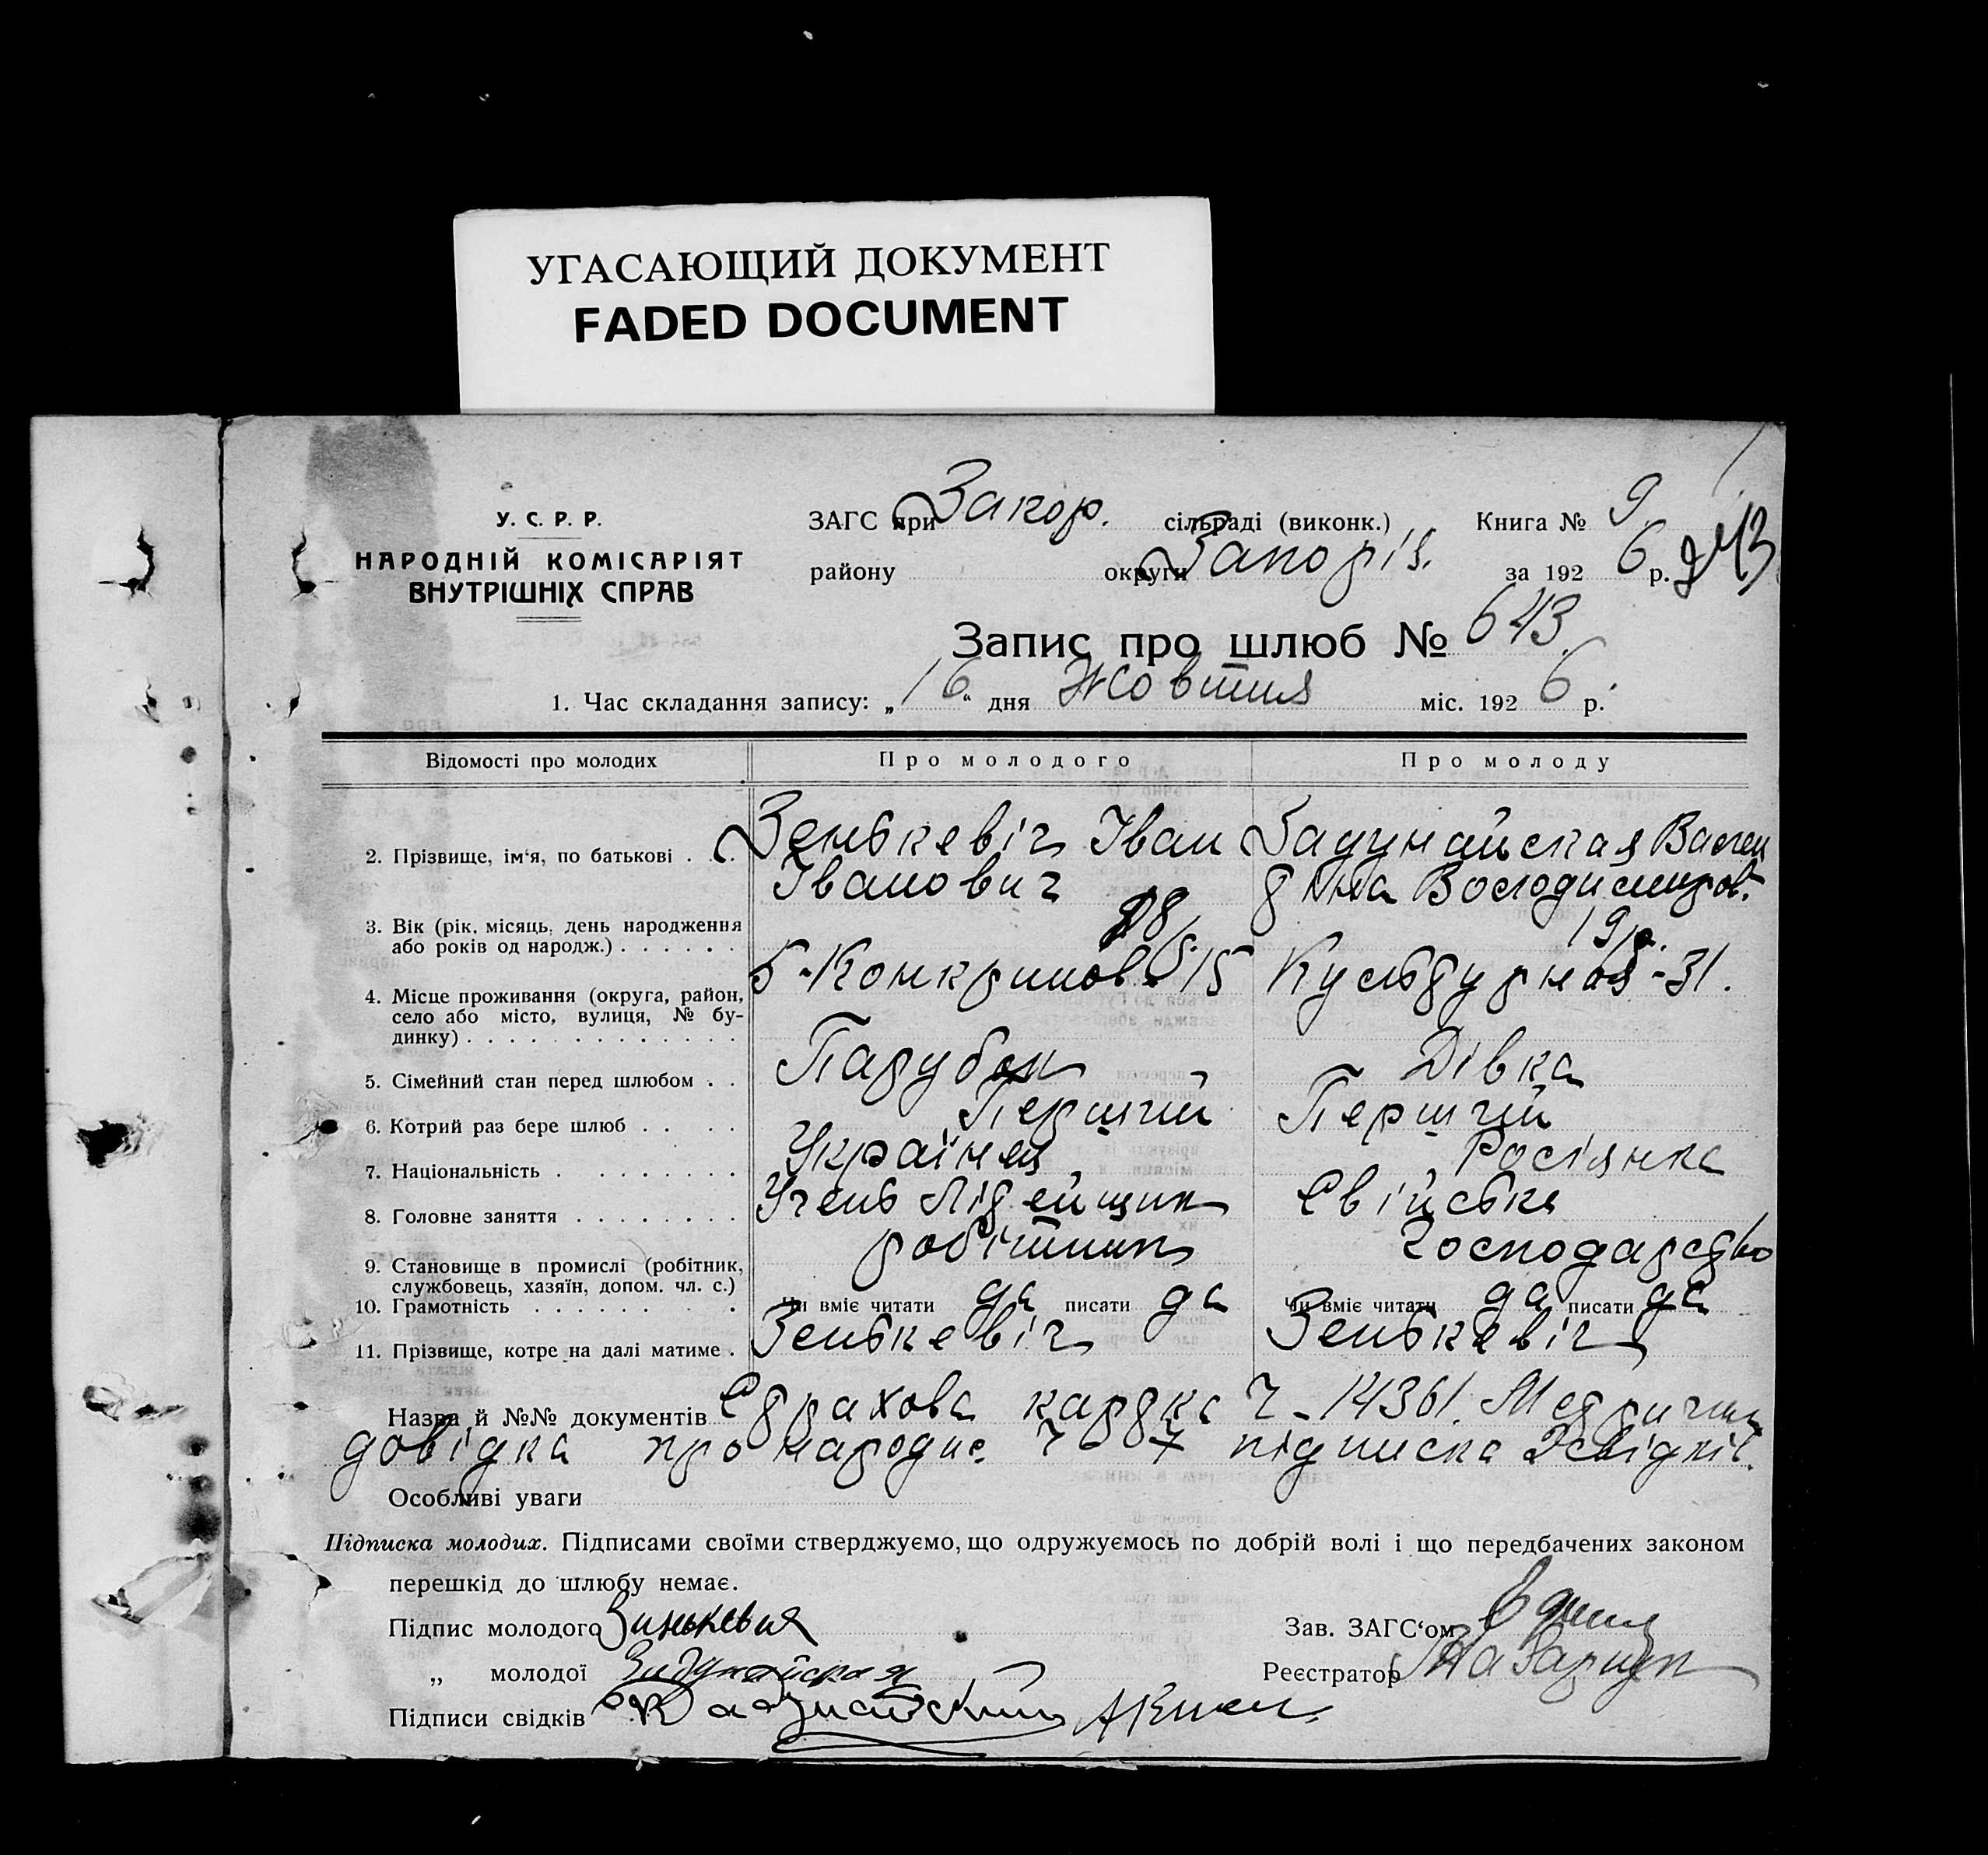 УГАСАЮЩИЙ ДОКУМЕНТ
FADED DOCUMENT
У. С. Р. Р.
НАРОДНІЙ КОМІСАРІЯТ
ВНУТРІШНІХ СПРАВ
ЗАГС при Закор. сільраді (виконк.) Книга № 9
району округи Запоріз. за 192 6 р. 243
Запис про шлюб № 643.
1. Час складання запису: „16“ дня Жовтня міс. 192 6 р.
Відомості про молодих Про молодого Про молоду
2. Прізвище, ім‘я, по батькові . . . Зенькевіч Іван Задунайская Вален
Іванович тина Володимиров.
3. Вік (рік, місяць, день народження 28 19 р.
або років од народж.) . . . . . .
4. Місце проживання (округа, район, 15 Культурная -31.
село або місто, вулиця, № бу-
динку) . . . . . . . . . . . . .
5. Сімейний стан перед шлюбом . . Парубок Дівка
6. Котрий раз бере шлюб . . . . Перший Перший
7. Національність . . . . . . . . Українец Росіянка
8. Головне заняття . . . . . . . . Учень Літейщик Свійське
робітник господарство
9. Становище в промислі (робітник,
службовець, хазяїн, допом. чл. с.)
10. Грамотність . . . . . . . Чи вміє читати да писати да Чи вміє читати да писати да
11. Прізвище, котре на далі матиме . Зенькевіч Зенькевіч
Назва й №№ документів Страхова картка Ч - 14361. Метрична
довідка про народж. Ч підписка 2 свідків.
Особливі уваги
Підписка молодих. Підписами своїми стверджуємо, що одружуємось по добрій волі і що передбачених законом
перешкід до шлюбу немає.
Підпис молодого Зинькевич Зав. ЗАГС‘ом
„ молодої Задунайская Реєстратор
Підписи свідків